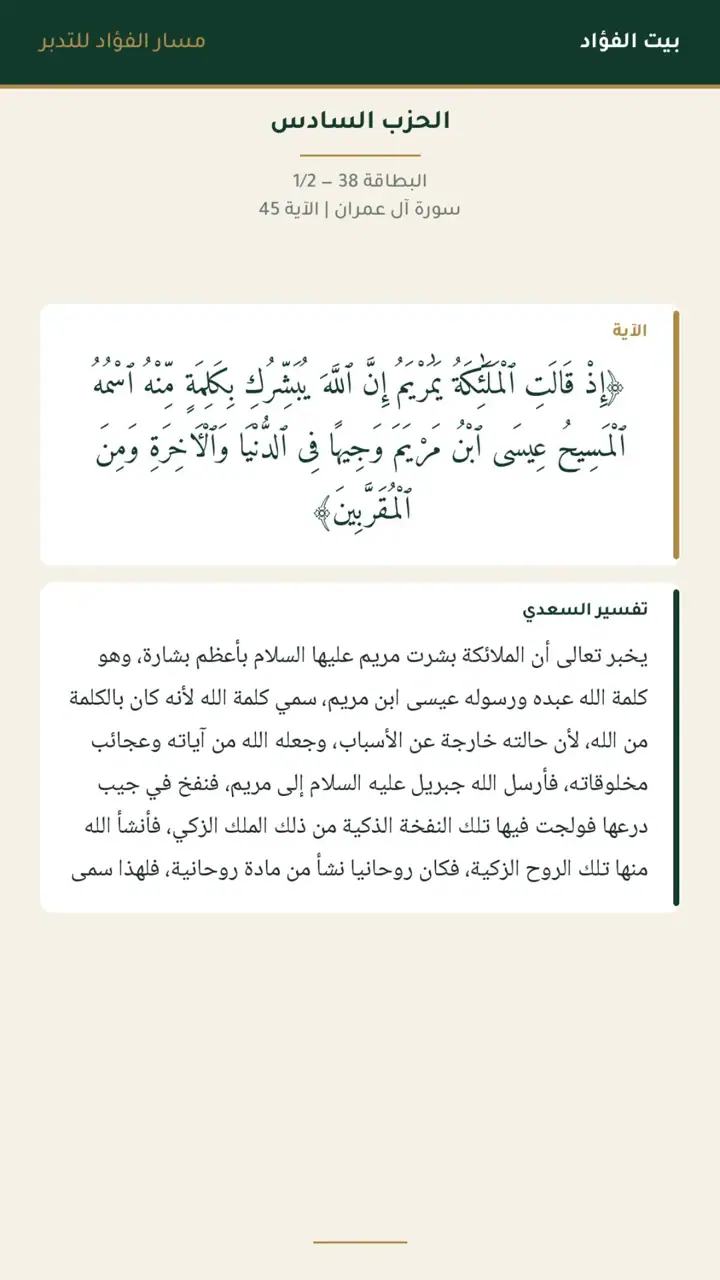 بيت الفؤاد
مسار الفؤاد للتدبر
الحزب السادس
البطاقة 38 – 1/2
سورة آل عمران | الآية 45
الآية
﴿إِذْ قَالَتِ ٱلْمَلَـٰٓئِكَةُ يَـٰمَرْيَمُ إِنَّ ٱللَّهَ يُبَشِّرُكِ بِكَلِمَةٍ مِّنْهُ ٱسْمُهُ
ٱلْمَسِيحُ عِيسَى ٱبْنُ مَرْيَمَ وَجِيهًا فِى ٱلدُّنْيَا وَٱلْـَٔاخِرَةِ وَمِنَ
ٱلْمُقَرَّبِينَ﴾
تفسير السعدي
يخبر تعالى أن الملائكة بشرت مريم عليها السلام بأعظم بشارة، وهو
كلمة الله عبده ورسوله عيسى ابن مريم، سمي كلمة الله لأنه كان بالكلمة
من الله، لأن حالته خارجة عن الأسباب، وجعله الله من آياته وعجائب
مخلوقاته، فأرسل الله جبريل عليه السلام إلى مريم، فنفخ في جيب
درعها فولجت فيها تلك النفخة الذكية من ذلك الملك الزكي، فأنشأ الله
منها تلك الروح الزكية، فكان روحانيا نشأ من مادة روحانية، فلهذا سمى